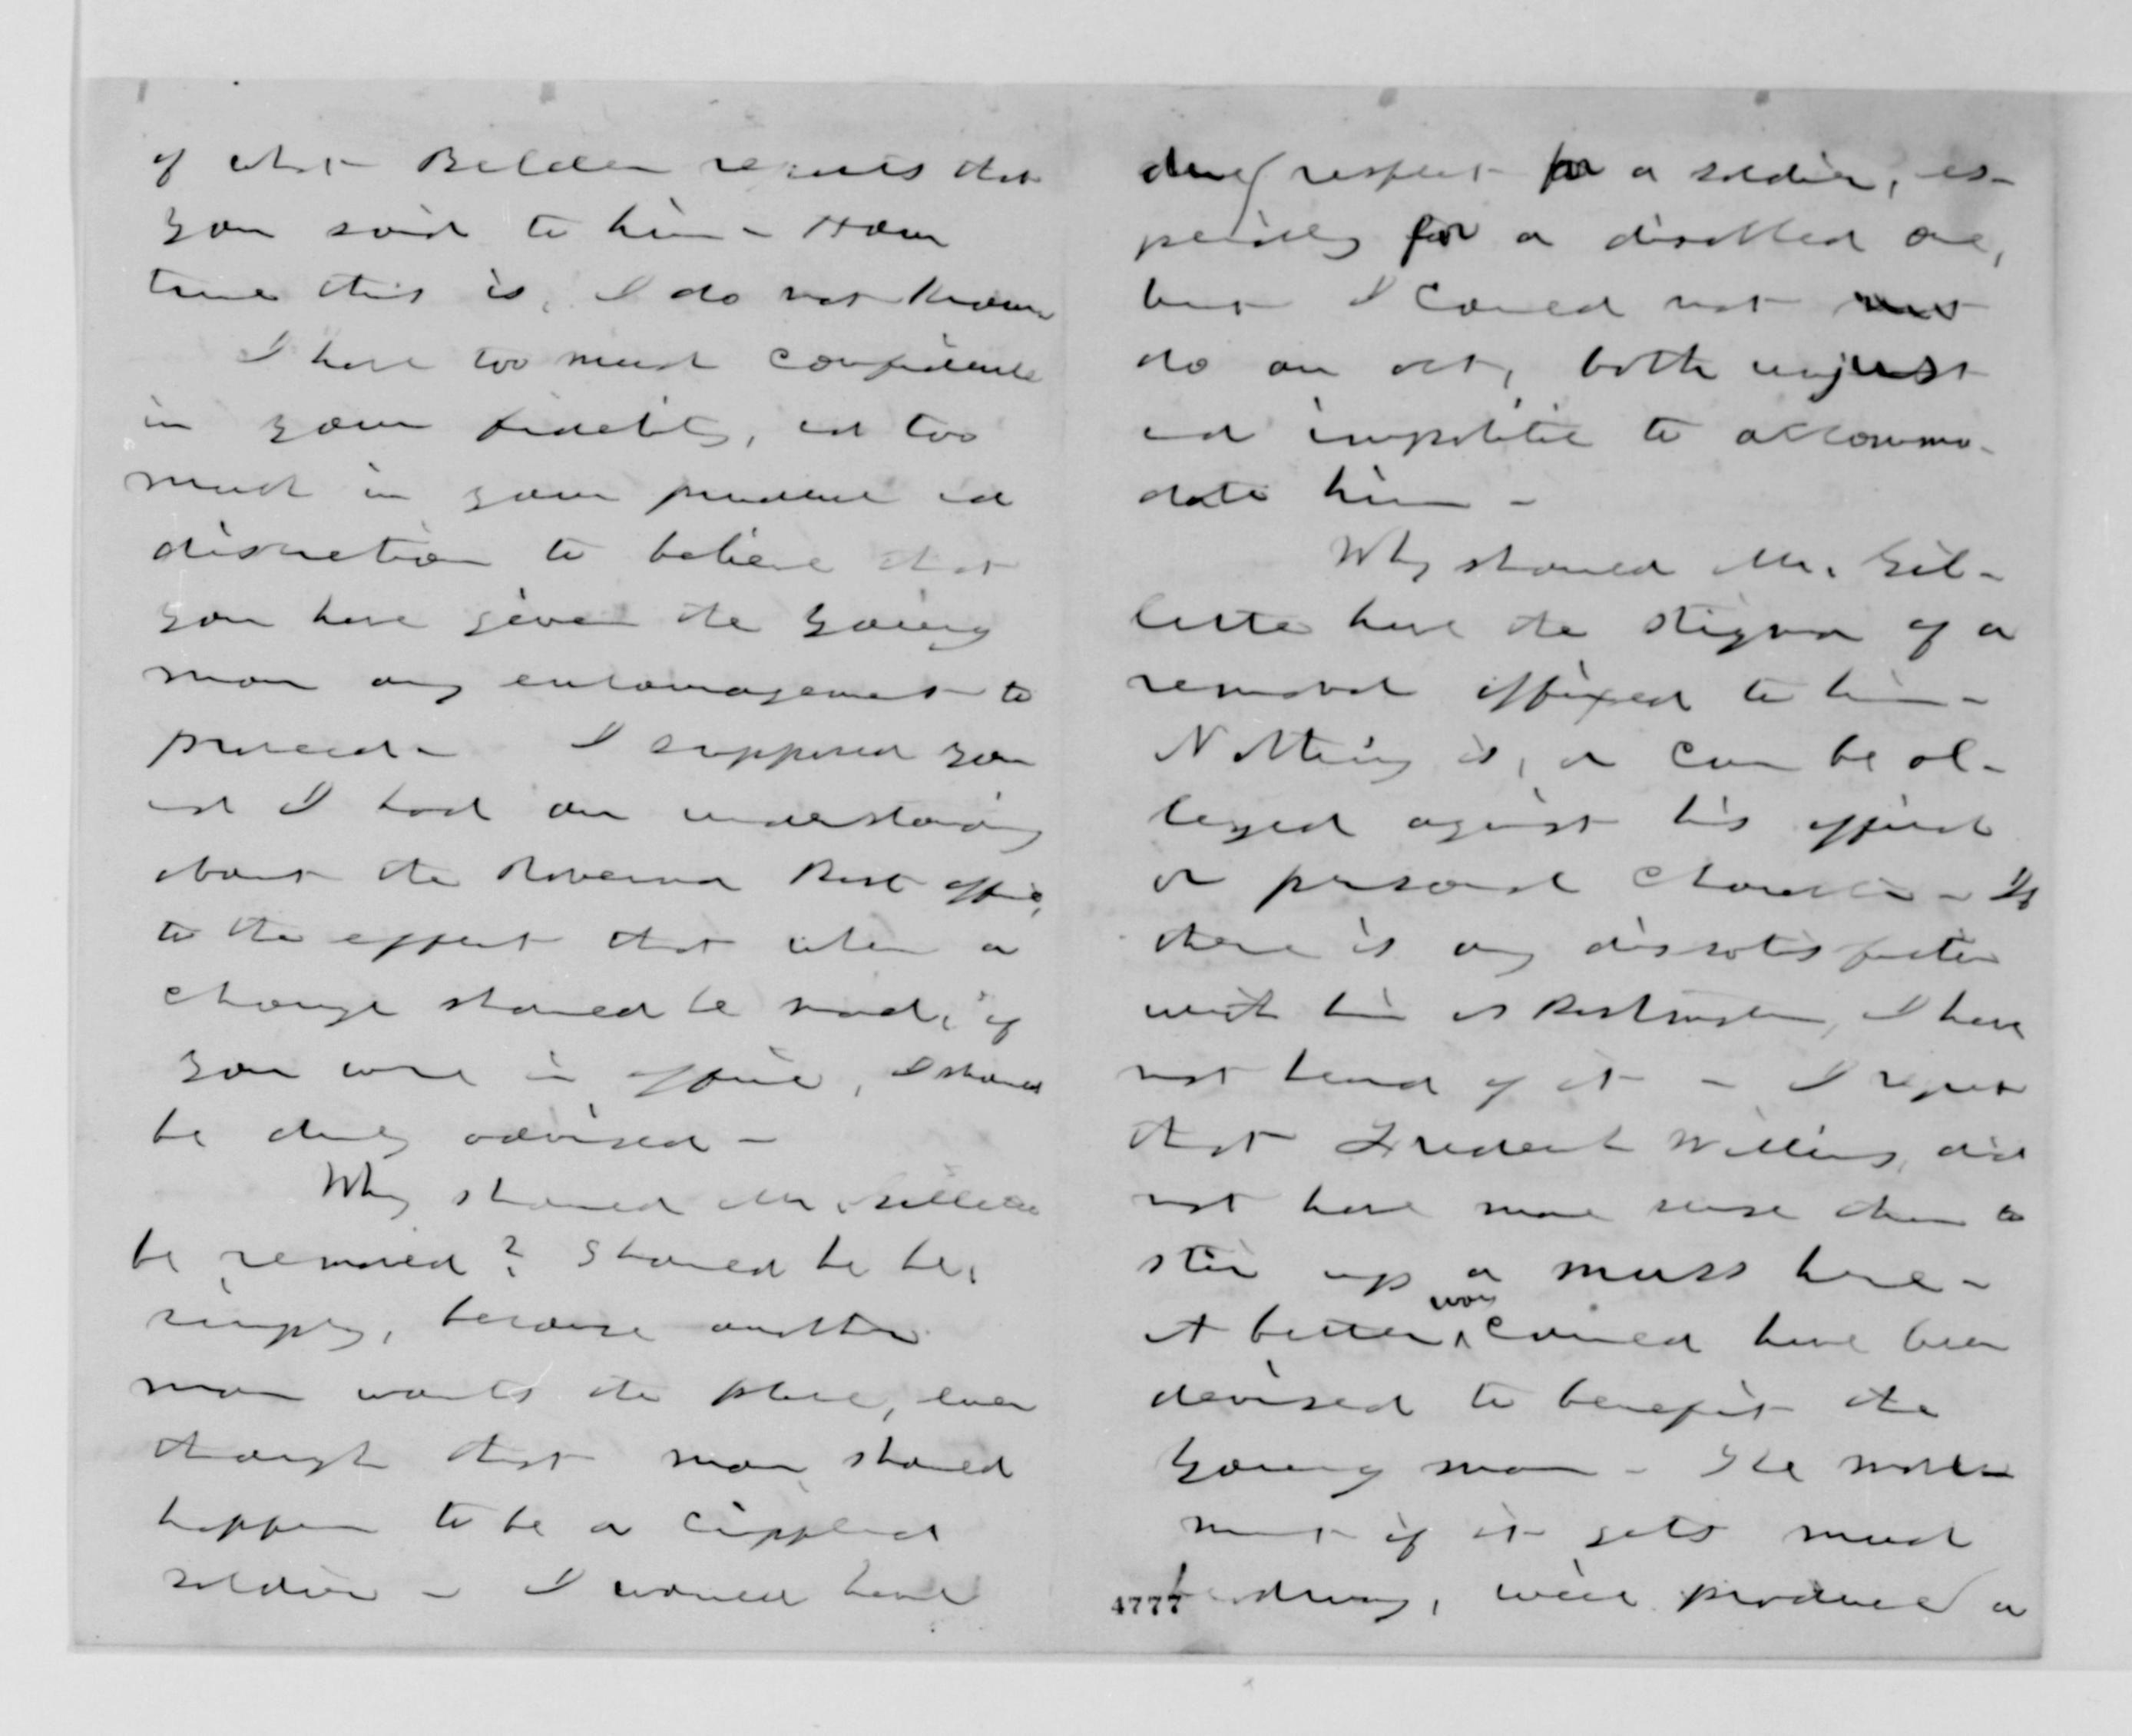 of what Belden reports that
you said to him - How
true this is, I do not know
I have too much confidence
in your fidelity, and too
much in your prudence and
discretion to believe that
you have given the young
man any encouragement to
proceed - I supposed you
and I had an understanding
about the Ravenna Post office,
to the effect that when a
change should be made, if
you were in office, I should
be duly advised -
Why should Mr. Gillette
be removed? Should he be,
simply, because another
man wants the place, even
though that man should
happen to be a crippled
soldier - I would have
due respect for a soldier, es-
pecially for a disabled one,
but I could not
do an act, both unjust
and impolitic to accommo-
date him -
Why should Mr. Gil-
lette have the stigma of a
removal affixed to him -
Nothing is, or can be al-
leged against his official
or personal character - If
there is any dissatisfaction
with him as Postmaster, I have
not heard of it - I regret
that Frederick Williams, did
not have more sense than to
stir up a muss here -
A better way could have been
devised to benefit the
young man - The move-
ment if it gets much
4777 headway, will produce a